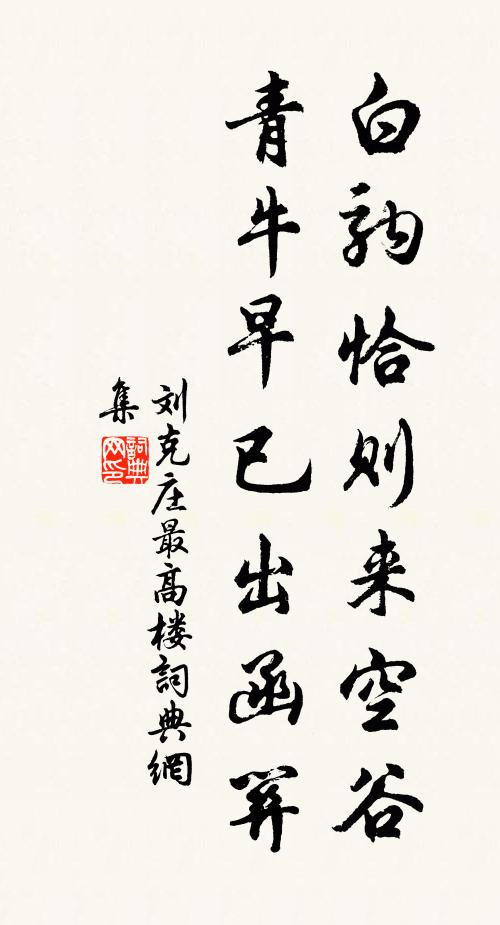 白駒恰则来空谷
青牛早已出函關
刘克庄最高楼詞典網
集
詞典网印